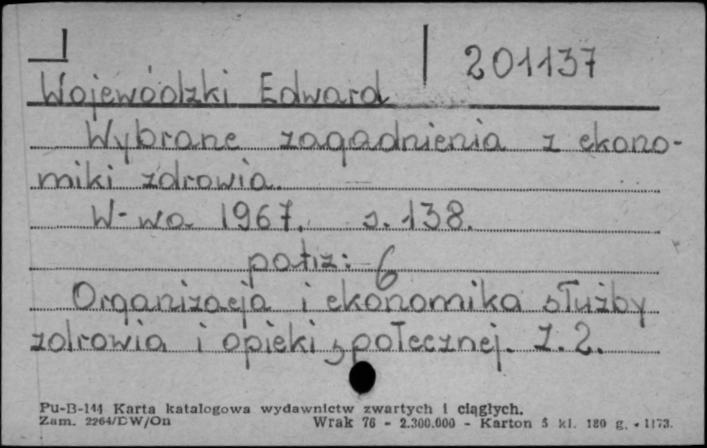 201137
Wojewódzki Edward
Wybrane zagadnienia z ekono-
miki zdrowia.
W-wa 1967. s. 138.
patrz: 6
Organizacja i ekonomika służby
zdrowia i opieki społecznej. Z. 2.
Pu-B-144 Karta katalogowa wydawnictw zwartych i ciągłych.
Zam. 2264/DW/On Wrak 76 - 2.300.000 - Karton 5 kl. 180 g. - 1173.